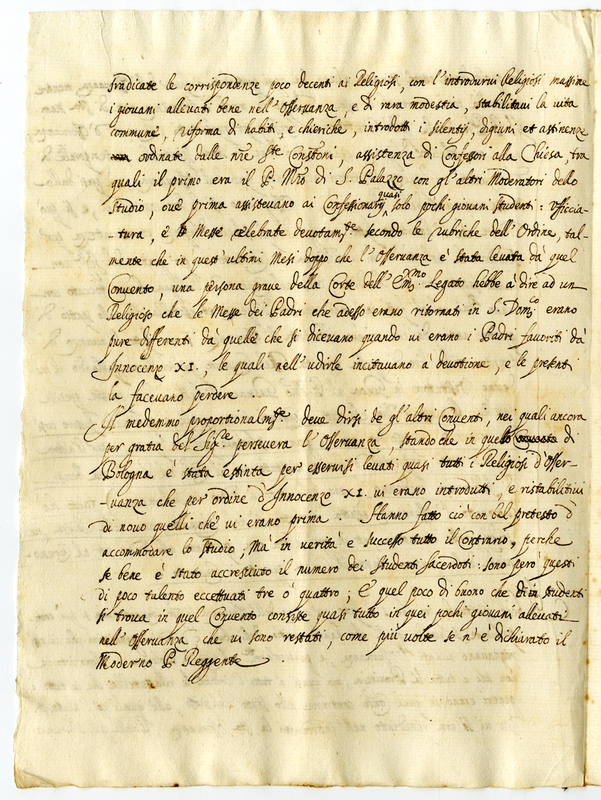 sradicate le corrispondenze poco decenti ai Religiosi, con l'introdurvi Religiosi massime
i giovani allevati bene nell'Osservanza, e di rara modestia, stabilitavi la vita
commune, riforma di habiti, e chieriche, introdotti i silentij, digiuni et astinenze
ordinate dalle nr̃e Ste Constōni, assistenza di Confessori alla Chiesa, tra
quali il primo era il P. Mr̃o di S. Palazzo con gl'altri Moderatori dello
Studio, ove prima assistevano ai Confessionarij quasi solo pochi giovani studenti: Officia-
-tura, e le Messe celebrate devotamte secondo le rubriche dell'Ordine, tal-
mente che in quest ultimi Mesi doppo che l'Osservanza è stata levata dà quel
Convento, una persona grave della Corte dell'Emmo Legato hebbe à dire ad un
Religioso che le Messe dei Padri che adesso erano ritornati in S. Domco erano
pure differenti dà quelle che si dicevano quando vi erano i Padri favoriti dà
Innocenzo XI., le quali nell'udirle incitavano à devotione, e le presenti
la facevano perdere.
Il medemmo proportionalmte deve dirsi de gl'altri Conventi, nei quali ancora
per gratia del Sigre persevera l'Osservanza, stando che in quello di
Bologna è stata estinta per esservisi levati quasi tutti i Religiosi d'Osser-
-vanza che per ordine d'Innocenzo XI. vi erano introdutti, e ristabilitivi
di novo quelli che vi erano prima. Hanno fatto ciò con bel pretesto d'
accommodare lo studio; Mà in verità è successo tutto il contrario, perche
se bene è stato accresciuto il numero dei Studenti sacerdoti: sono però questi
di poco talento eccettuati tre ò quattro; E quel poco di buono che di studenti
si trova in quel Convento consiste quasi tutto in quei pochi giovani allevati
nell'Osservanza che vi sono restati, come più volte se n'è dichiarato il
Moderno P. Reggente.